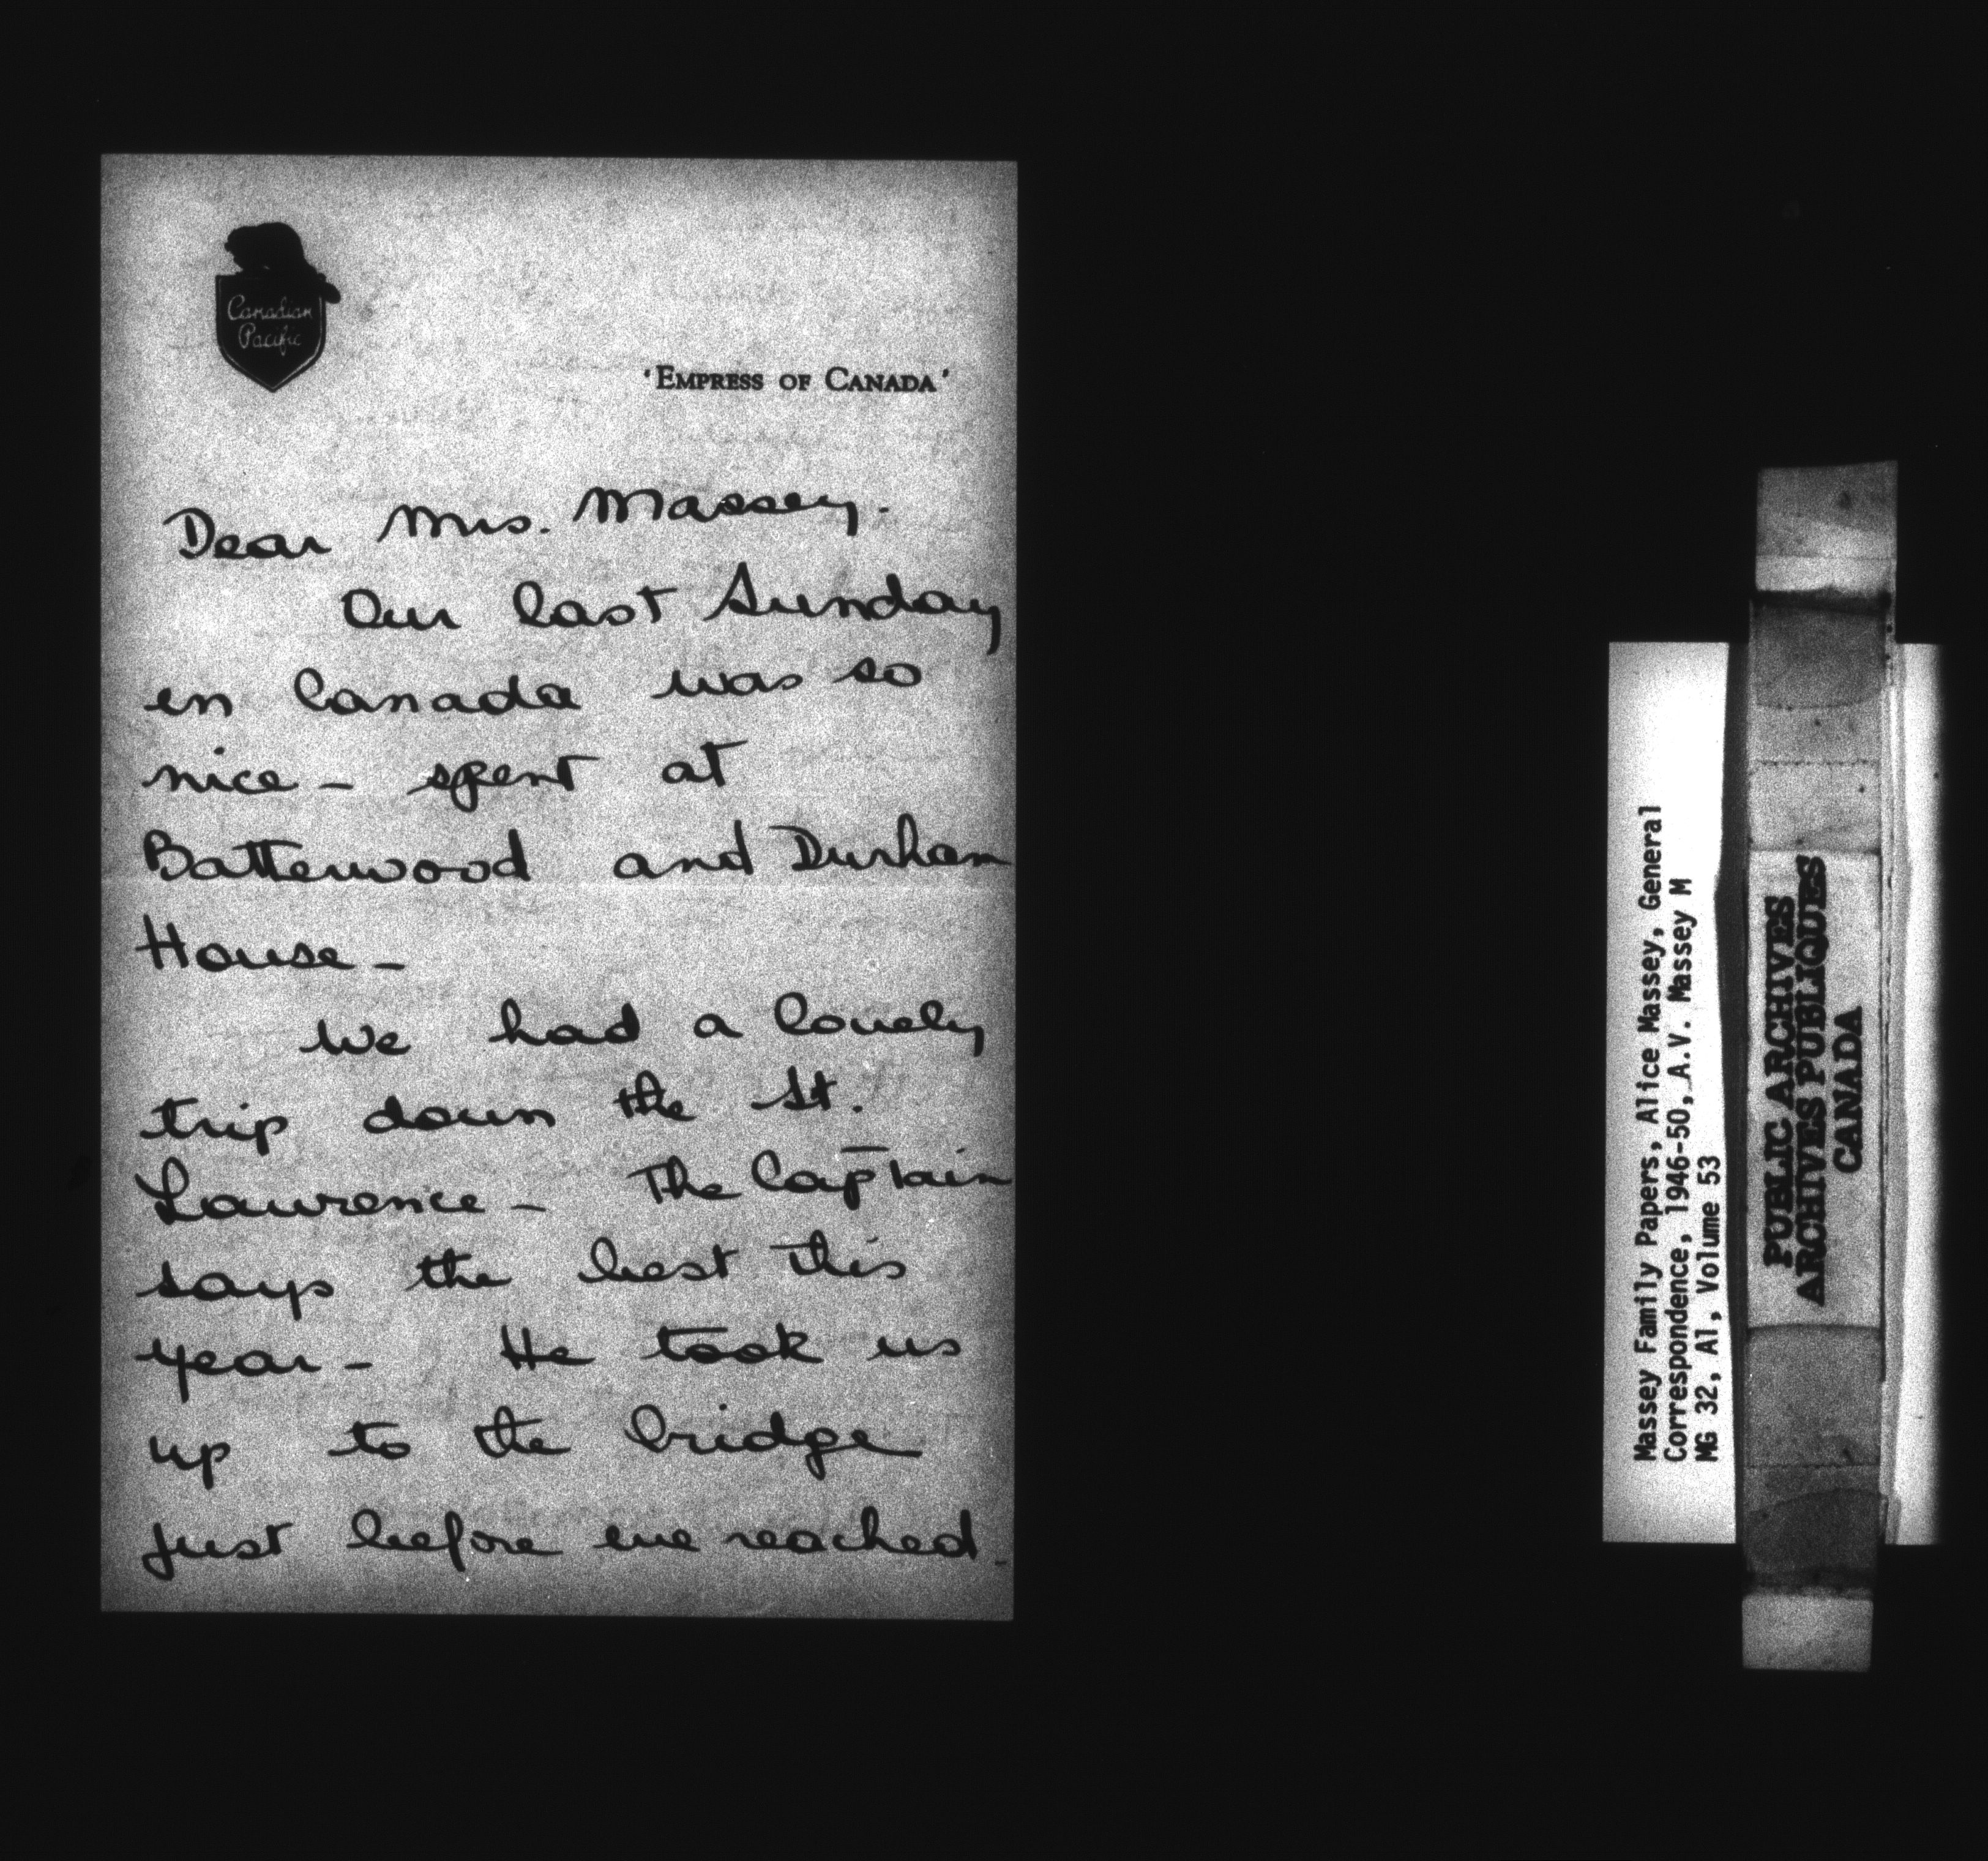 Canadian
Pacific
'EMPRESS OF CANADA'
Dear Mrs. Massey.
Our last Sunday
in Canada was so
nice – spent at
Batterwood and Durham
House –
We had a lovely
trip down the St.
Lawrence – The Captain
says the best this
year – He took us
up to the bridge
just before we reached
Massey Family Papers, Alice Massey, General
Correspondence, 1946-50, A.V. Massey M
MG 32, A1, Volume 53
PUBLIC ARCHIVES
ARCHIVES PUBLIQUES
CANADA